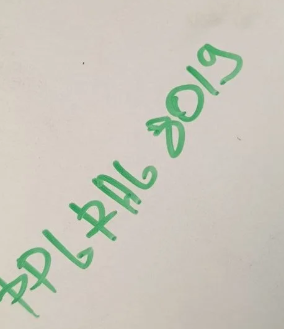 PPL RAL 8019